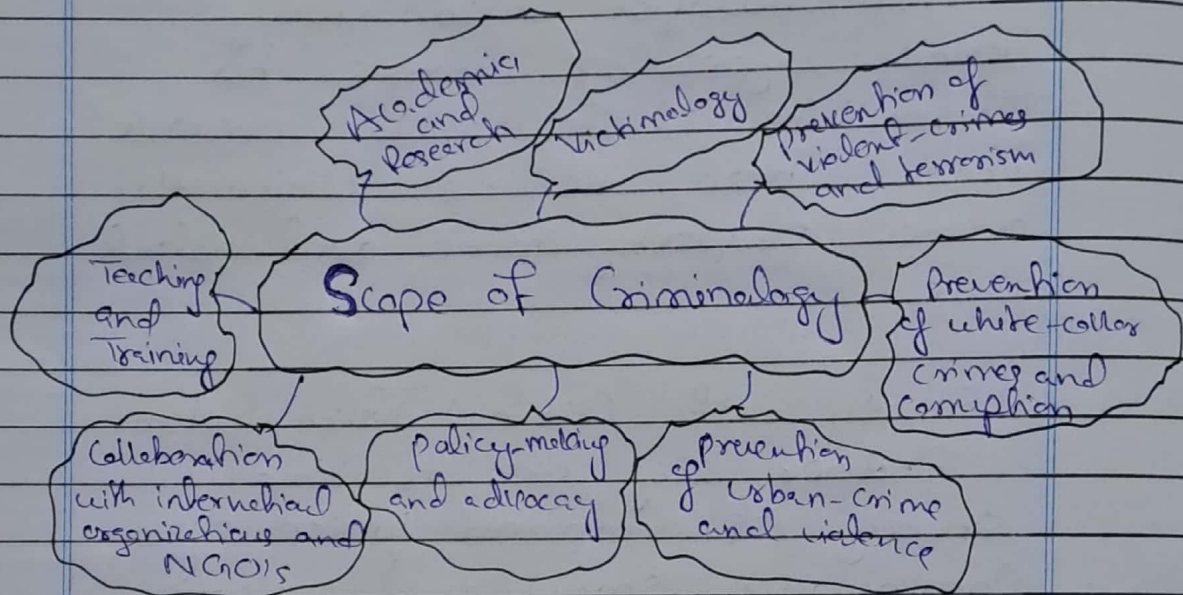 Academia
and
Research
Victimology
Prevention of
violent-crimes
and terrorism
Teaching
and
Training
Scope of Criminology
Prevention
of white-collar
crimes and
corruption
Collaboration
with internatioal
organizations and
NGO's
policy-making
and advocacy
prevention
of urban-crime
and violence